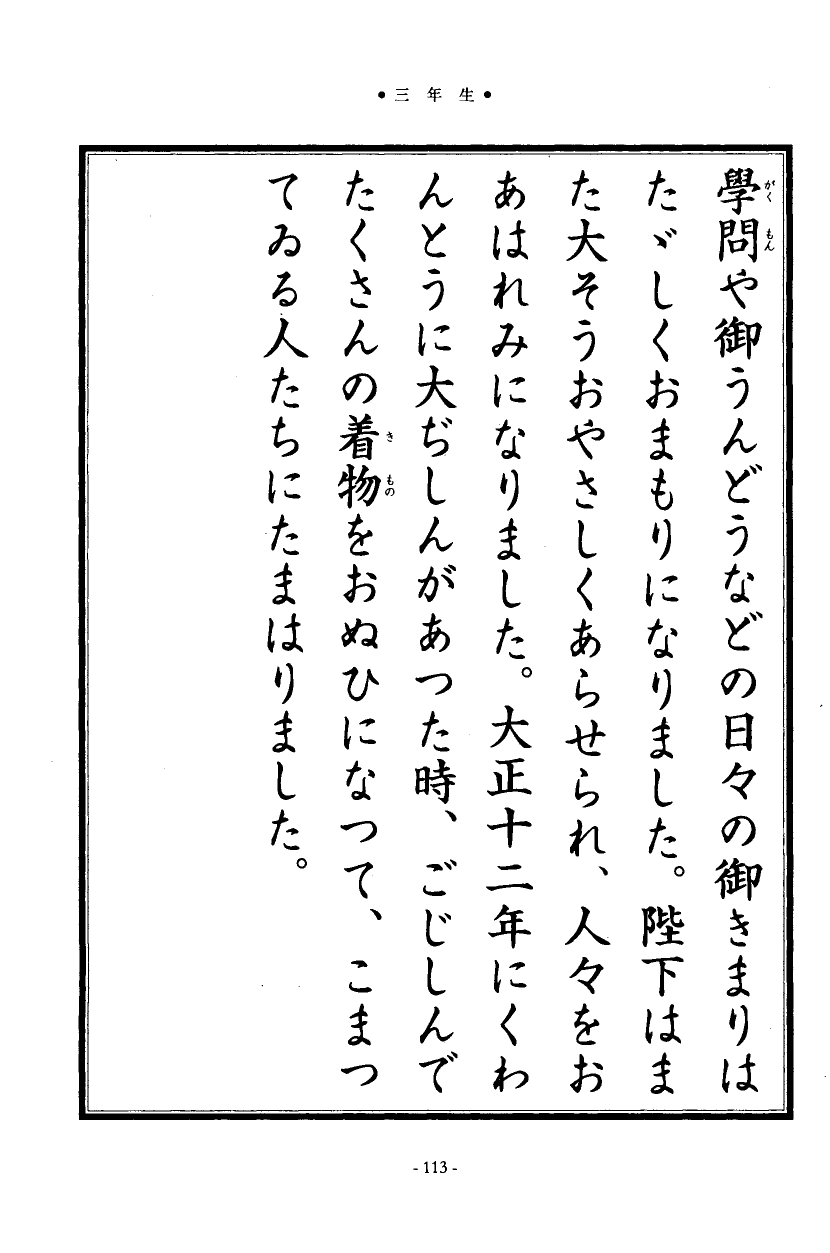 •三年生•
學問や御うんどうなどの日々の御きまりは
たゞしくおまもりになりました。陛下はま
た大そうおやさしくあらせられ、人々をお
あはれみになりました。大正十二年にくわ
んとうに大ぢしんがあつた時、ごじしんで
たくさんの着物をおぬひになつて、こまつ
てゐる人たちにたまはりました。
がくもん
きもの
- 113 -